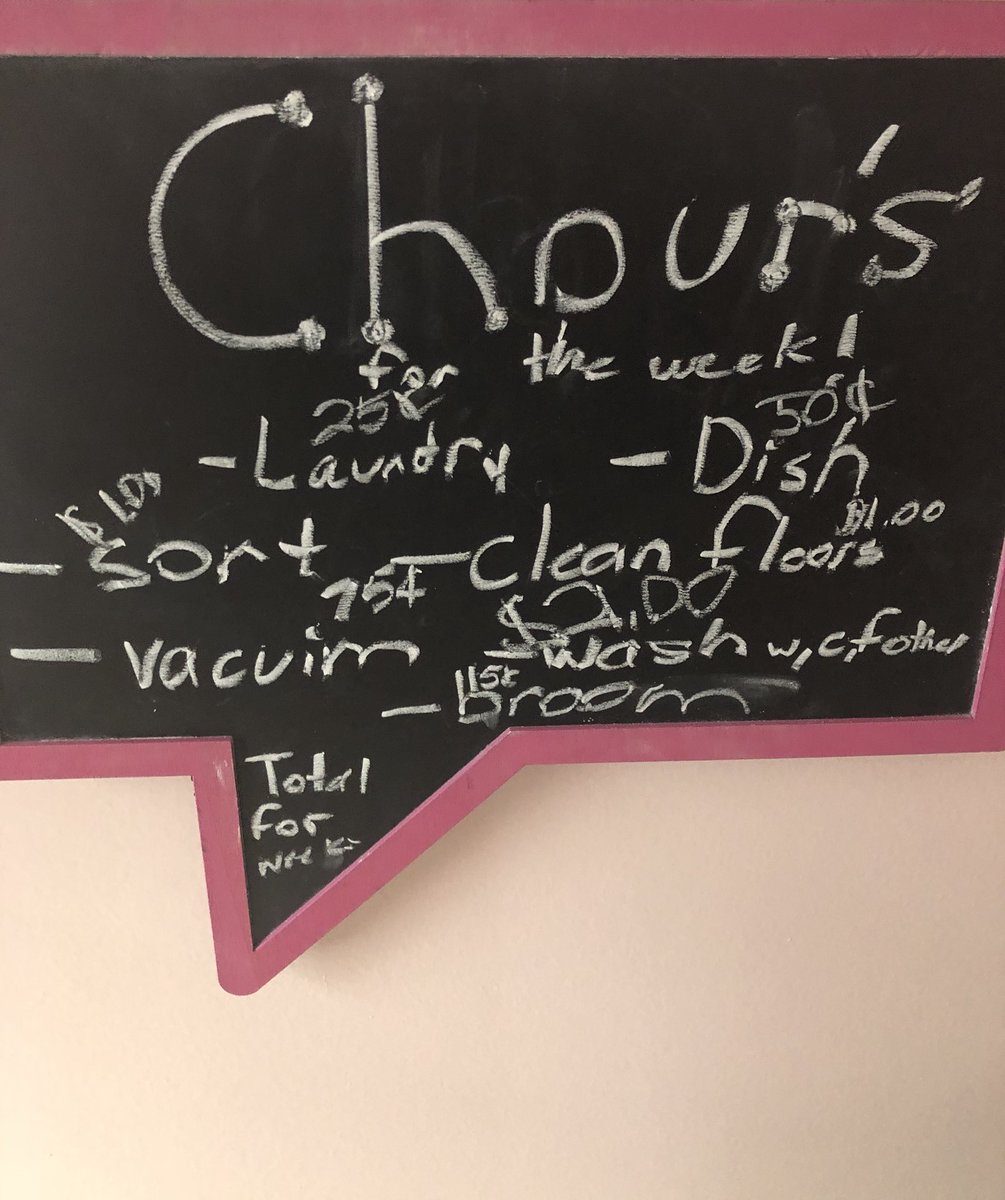 Chour's
for the week!
25¢ 50¢
- Laundry - Dish
$1.00 $1.00
- Sort - Clean floors
75¢ $2.00
- vacuim - wash w,c,f other
15¢
- broom
Total
For
week